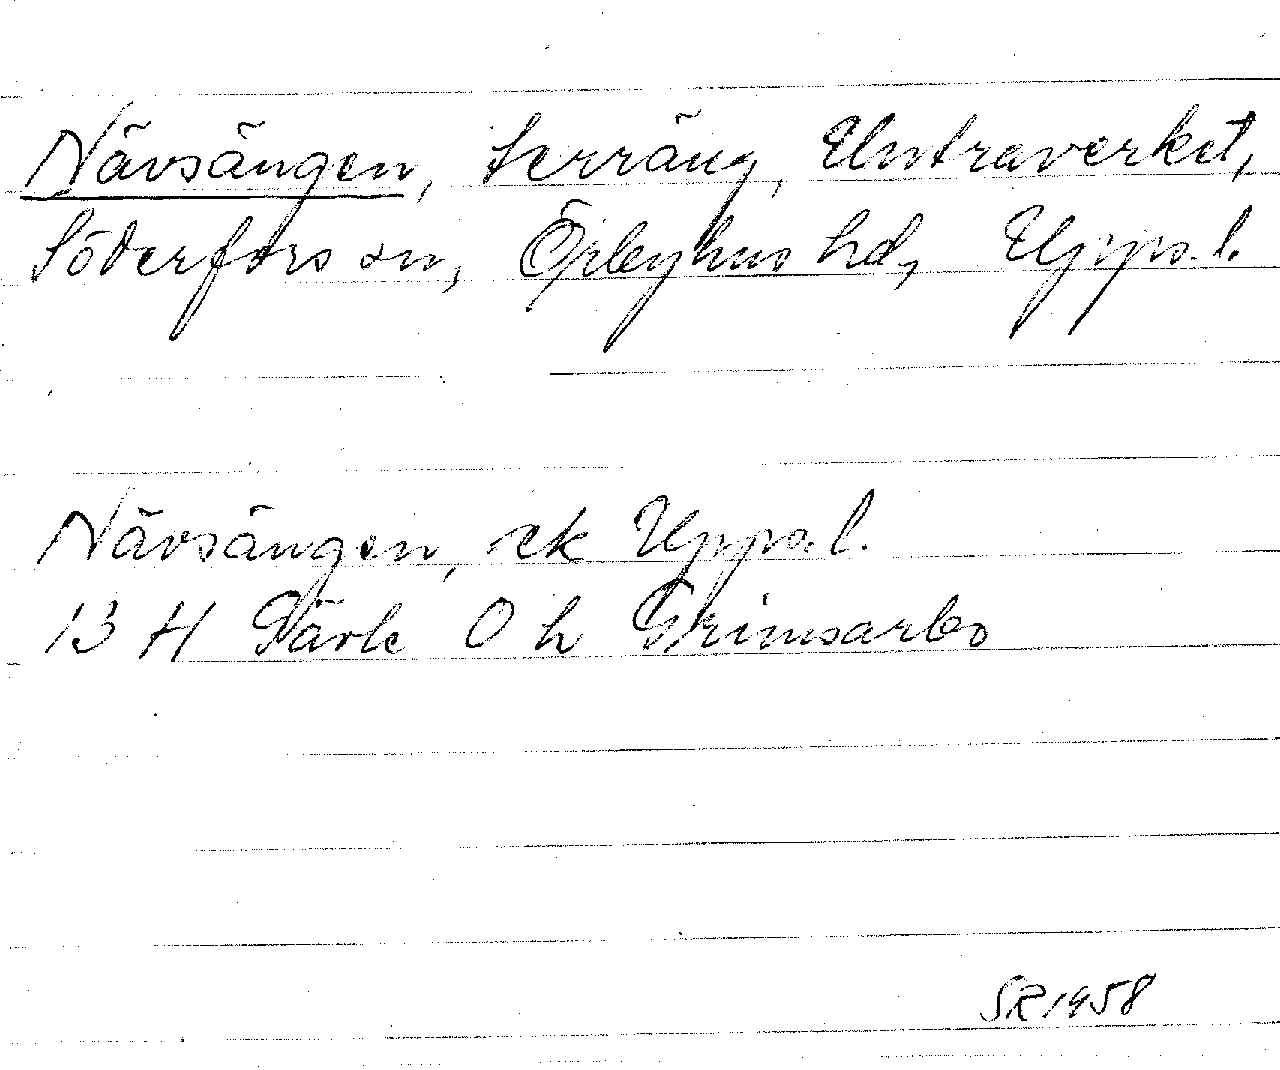 Nävsängen, terräng, Untraverket,
Söderfors sn, Örbyhus hd, Upps. l.
Nävsängen, ek Upps. l.
13 H Särle O h Grimsarbo
SR 1958